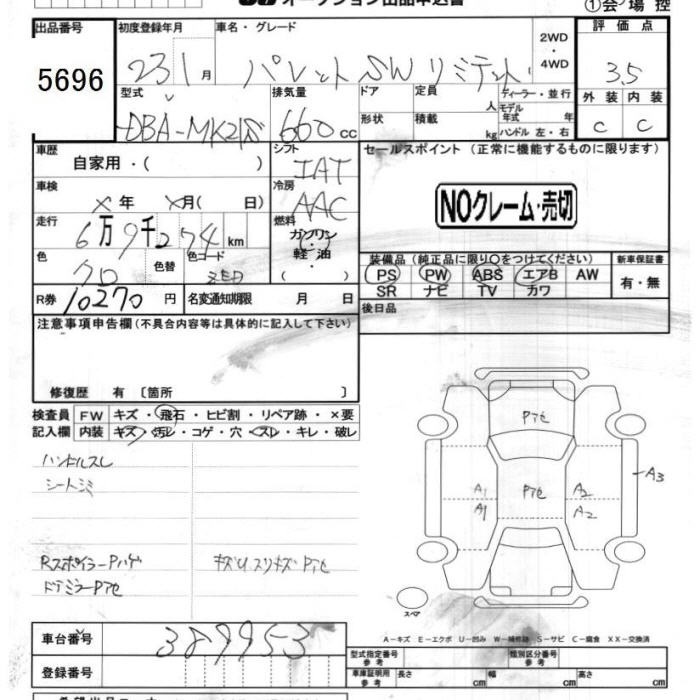 オークション出品申込書
①会場控
出品番号 初度登録年月 車名・グレード 2WD・4WD 評価点
5696 23 1月 パレット SW リミテット 3.5
型式 排気量 ドア 定員 人 ディーラー・並行 外装 内装
DBA-MK21S 660 cc 形状 積載 kg モデル年式 年 ハンドル 左・右 C C
車歴 シフト セールスポイント（正常に機能するものに限ります）
自家用・( ) IAT
車検 冷房 NOクレーム・売切
×年 ×月( 日) AAC
走行 燃料
6万9千274km ガソリン
色 色替 色コード 軽油・ 装備品（純正品に限り○をつけてください） 新車保証書
クロ ZED ( ・ ) PS PW ABS エアB AW 有・無
SR ナビ TV カワ
R券 10270円 名変通知期限 月 日 後日品
注意事項申告欄（不具合内容等は具体的に記入して下さい）
修復歴 有〔箇所 〕
検査員 FW キズ・飛石・ヒビ割・リペア跡・×要
記入欄 内装 キズ・汚レ・コゲ・穴・スレ・キレ・破レ
ハンドルスレ
シートシミ
RスポイラーPハゲ キズUスリキズPアセ
ドアミラーPアセ
Pアセ
A3
A1 Pアセ A2
A1 A2
スペア
A－キズ E－エクボ U－凹み W－補修跡 S－サビ C－腐食 XX－交換済
車台番号 389953
型式指定番号 参考 類別区分番号 参考
登録番号 車庫証明用 参考 長さ cm 幅 cm 高さ cm